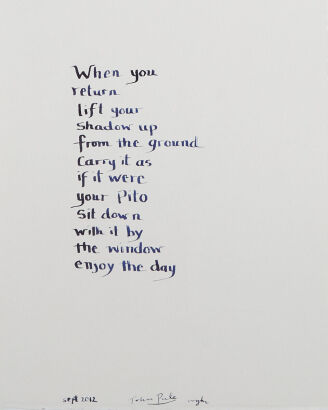 When you
return
lift your
Shadow up
from the ground
Carry it as
if it were
your Pito
Sit down
with it by
the window
enjoy the day
sept 2012